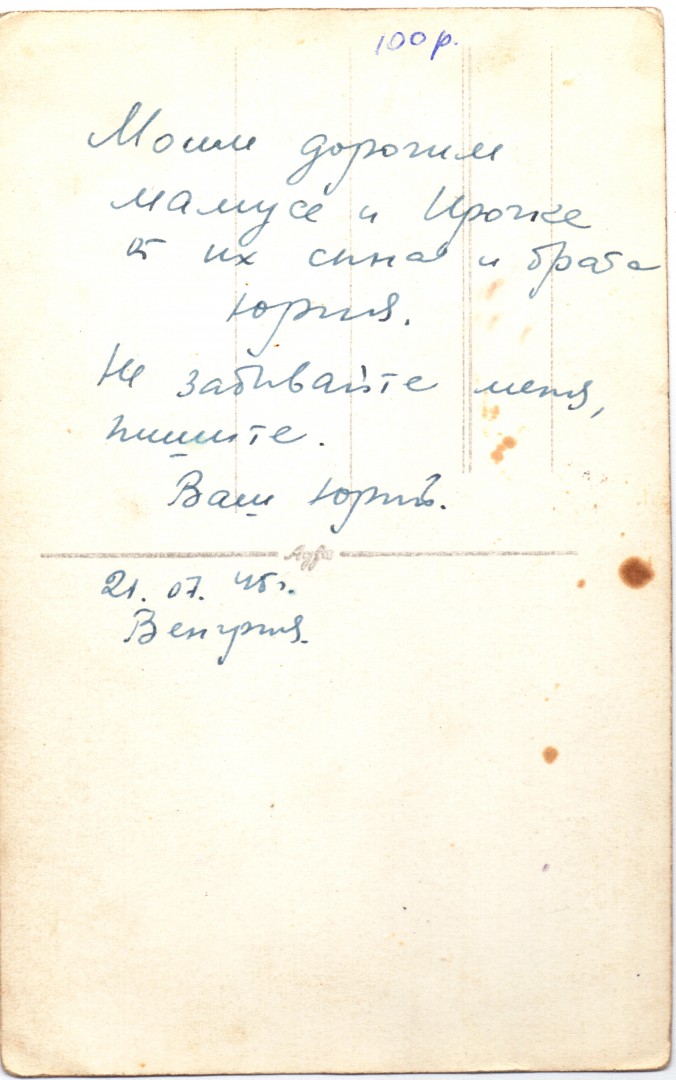 100 р.
Моим дорогим
мамусе и Ирочке
от их сына и брата
Юрия.
Не забывайте меня,
пишите.
Ваш Юрий.
Agfa
21. 07. 45 г.
Венгрия.